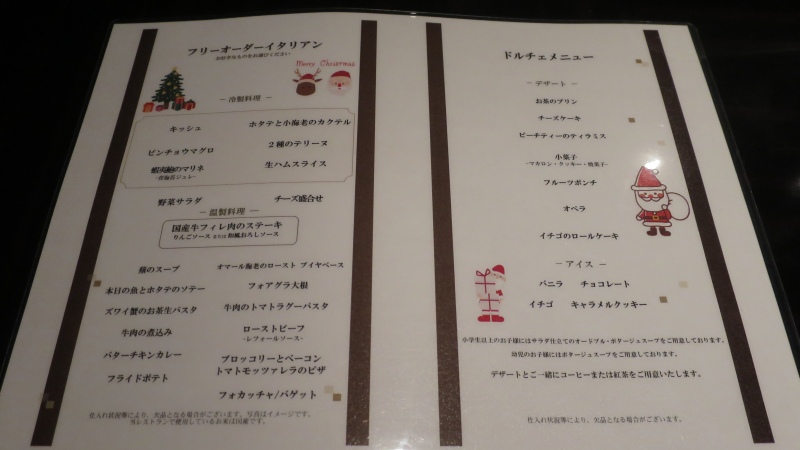 フリーオーダーイタリアン
お好きなものをお選びください
Merry Christmas
－ 冷製料理 －
キッシュ
ホタテと小海老のカクテル
ビンチョウマグロ
2種のテリーヌ
蝦夷鮑のマリネ
生ハムスライス
野菜サラダ
チーズ盛合せ
－ 温製料理 －
国産牛フィレ肉のステーキ
りんごソース または 和風おろしソース
のスープ
オマール海老のロースト ブイヤベース
本日の魚とホタテのソテー
フォアグラ大根
ズワイ蟹のお茶生パスタ
牛肉のトマトラグーパスタ
牛肉の煮込み
ローストビーフ
-レフォールソース-
バターチキンカレー
ブロッコリーとベーコン
トマトモッツァレラのピザ
フライドポテト
フォカッチャ/バゲット
仕入れ状況等により、欠品となる場合がございます。写真はイメージです。
当レストランで使用しているお米は国産です。
ドルチェメニュー
－ デザート －
お茶のプリン
チーズケーキ
ピーチティーのティラミス
小菓子
-マカロン・クッキー・焼菓子-
フルーツポンチ
オペラ
イチゴのロールケーキ
－ アイス －
バニラ
チョコレート
イチゴ
キャラメルクッキー
小学生以上のお子様にはサラダ仕立てのオードブル・ポタージュスープをご用意しております。
幼児のお子様にはポタージュスープをご用意しております。
デザートとご一緒にコーヒーまたは紅茶をご用意いたします。
仕入れ状況等により、欠品となる場合がございます。